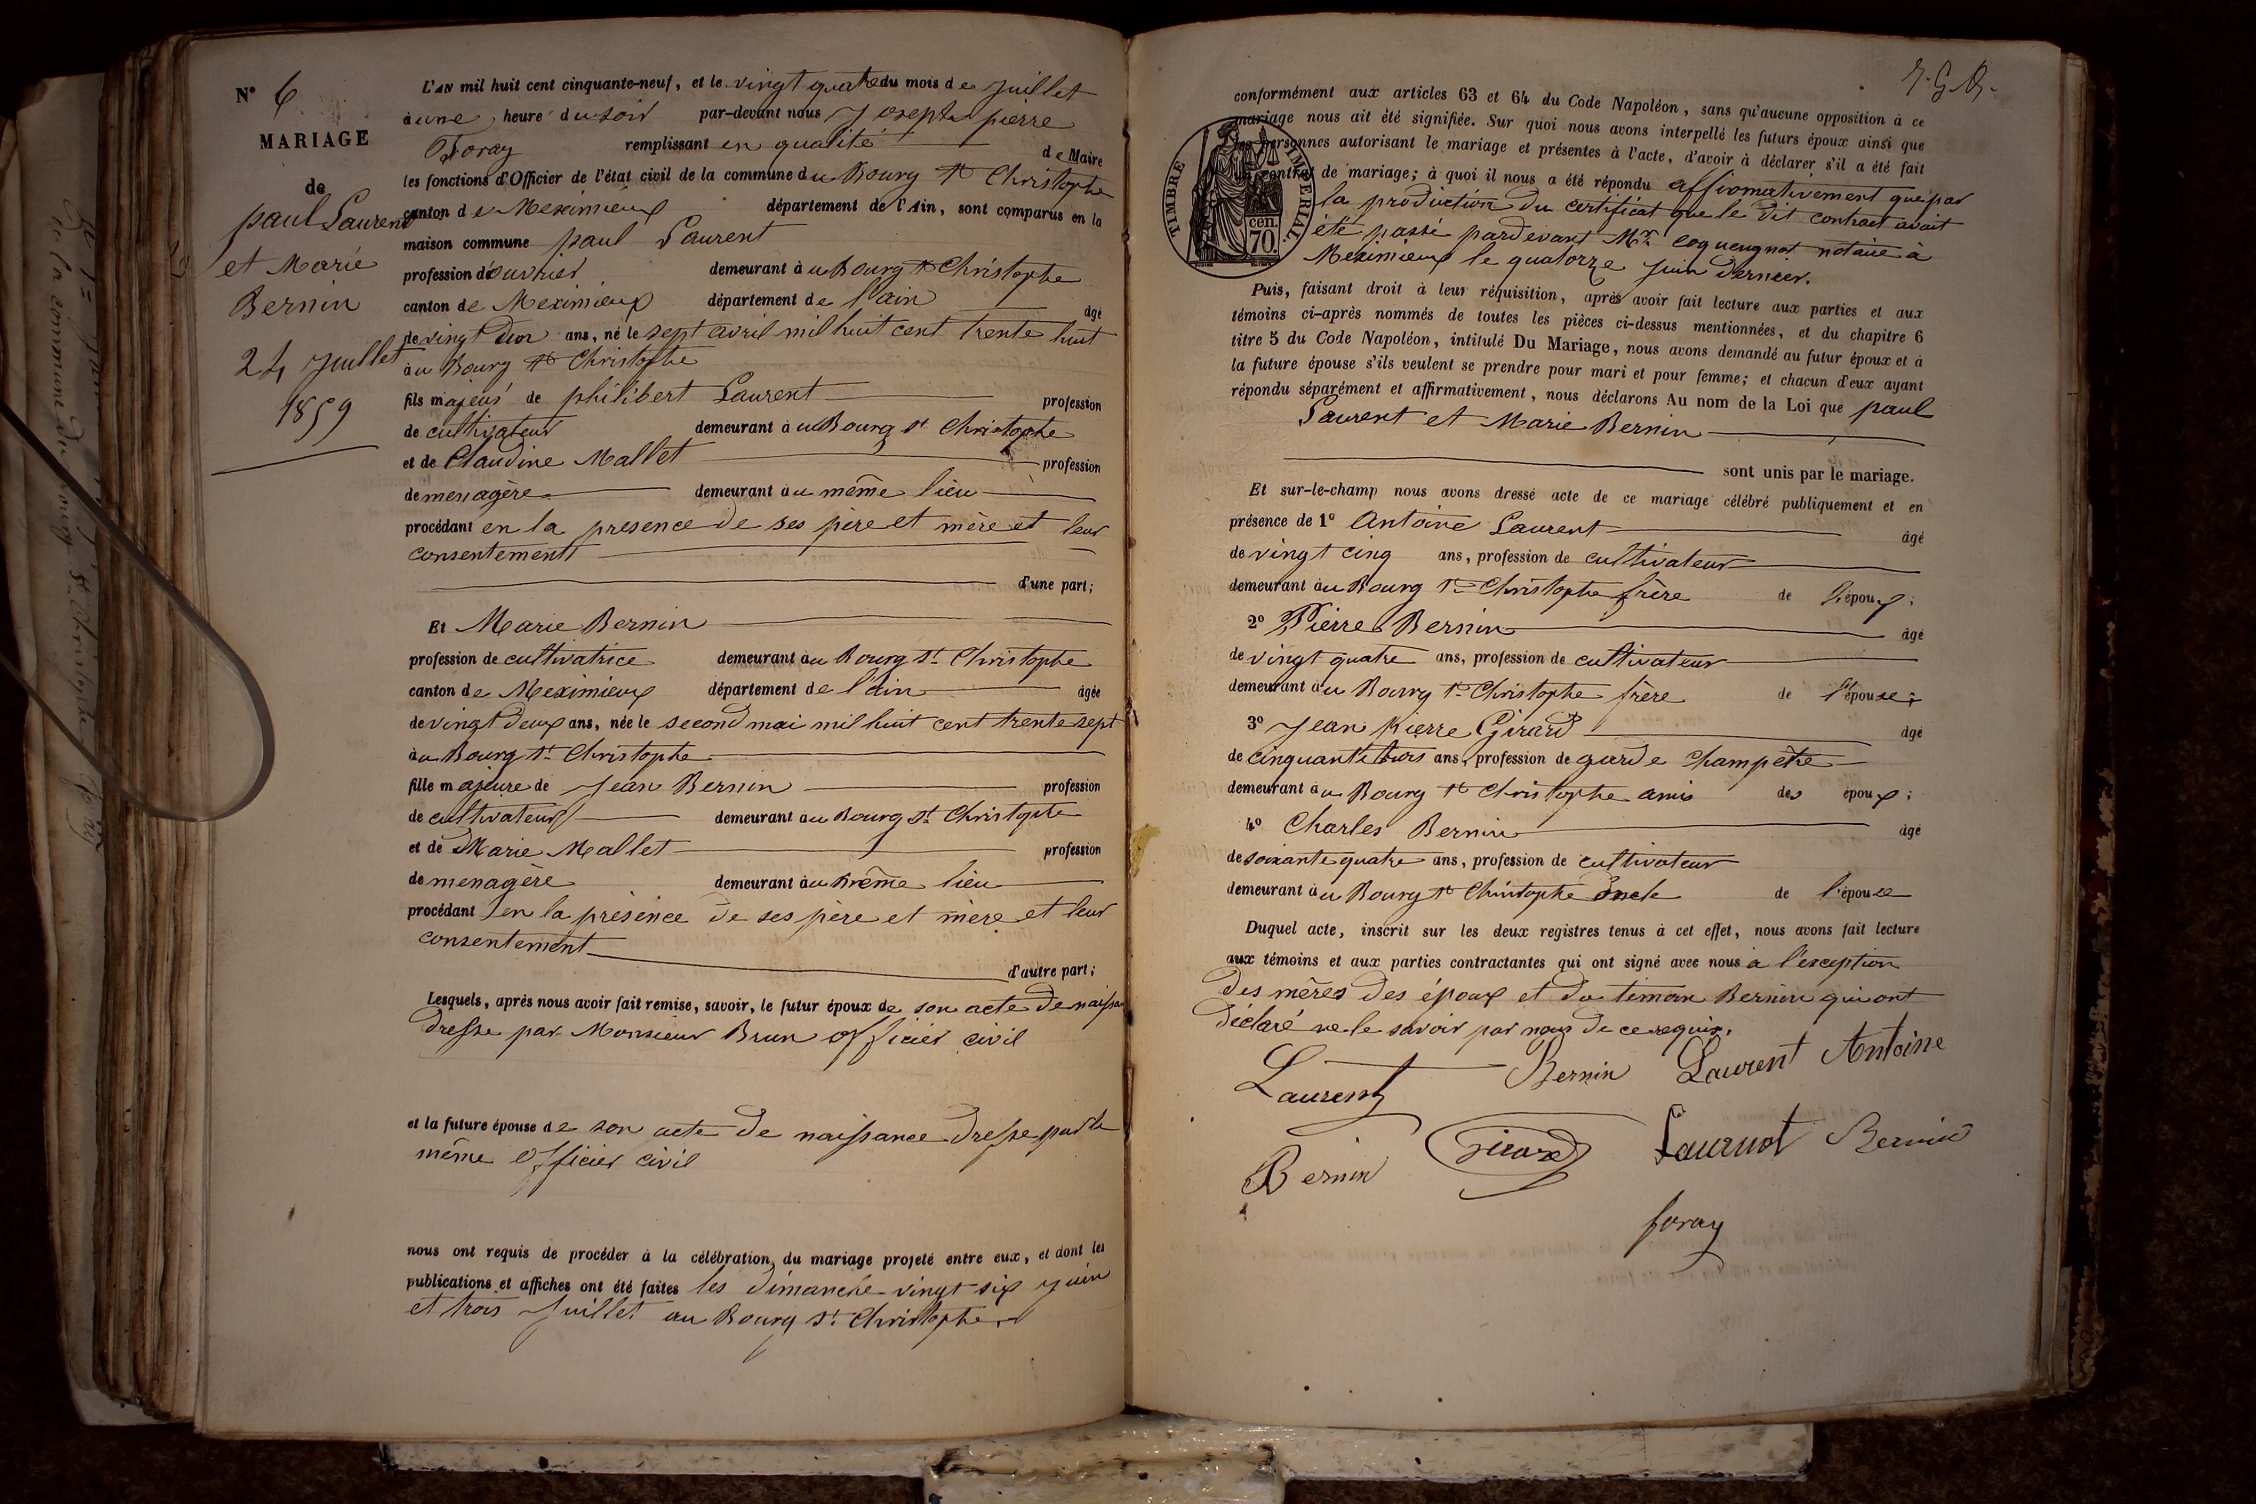 N° 6
MARIAGE
de
paul Laurent
et Marie
Bernin
24 Juillet
1859
L'AN mil huit cent cinquante-neuf, et le vingt quatre du mois de Juillet
à une heure du soir par-devant nous Joseph pierre
Foray remplissant en qualité de Maire
les fonctions d'Officier de l'état civil de la commune du Bourg St Christophe
canton de Meximieux département de l'Ain, sont comparus en la
maison commune paul Laurent
profession d'ouvrier demeurant au Bourg St Christophe
canton de Meximieux département de l'ain âgé
de vingt un ans, né le sept avril mil huit cent trente huit
au Bourg St Christophe
fils majeur de philibert Laurent profession
de cultivateur demeurant au Bourg St Christophe
et de Claudine Mallet profession
de menagère demeurant au même lieu
procédant en la presence de ses père et mère et leur
consentement
d'une part;
Et Marie Bernin
profession de cultivatrice demeurant au Bourg St Christophe
canton de Meximieux département de l'ain âgée
de vingt deux ans, née le second mai mil huit cent trente sept
au Bourg St Christophe
fille majeure de Jean Bernin profession
de cultivateur demeurant au Bourg St Christophe
et de Marie Mallet profession
de menagère demeurant au même lieu
procédant en la présence de ses père et mère et leur
consentement
d'autre part;
Lesquels, après nous avoir fait remise, savoir, le futur époux de son acte de
dresse par Monsieur Brun officier civil
et la future épouse de son acte de naissance dresse par le
même officier civil
nous ont requis de procéder à la célébration du mariage projeté entre eux, et dont les
publications et affiches ont été faites les dimanche vingt six juin
et trois Juillet au Bourg St Christophe
conformément aux articles 63 et 64 du Code Napoléon, sans qu'aucune opposition à ce
mariage nous ait été signifiée. Sur quoi nous avons interpellé les futurs époux ainsi que
les personnes autorisant le mariage et présentes à l'acte, d'avoir à déclarer s'il a été fait
un contrat de mariage; à quoi il nous a été répondu affirmativement que par
la production du certificat que le dit contract avait
été passé pardevant Mr Coqueugnot notaire à
Meximieux le quatorze juin dernier.
TIMBRE IMPERIAL.
cen.
70.
Puis, faisant droit à leur réquisition, après avoir fait lecture aux parties et aux
témoins ci-après nommés de toutes les pièces ci-dessus mentionnées, et du chapitre 6
titre 5 du Code Napoléon, intitulé Du Mariage, nous avons demandé au futur époux et à
la future épouse s'ils veulent se prendre pour mari et pour femme; et chacun d'eux ayant
répondu séparément et affirmativement, nous déclarons Au nom de la Loi que paul
Laurent et Marie Bernin
sont unis par le mariage.
Et sur-le-champ nous avons dressé acte de ce mariage célébré publiquement et en
présence de 1° Antoine Laurent âgé
de vingt cinq ans, profession de cultivateur
demeurant au Bourg St Christophe frère de l'époux;
2° Pierre Bernin âgé
de vingt quatre ans, profession de cultivateur
demeurant au Bourg St Christophe frère de l'épouse;
3° Jean Pierre Girard âgé
de cinquante trois ans, profession de garde champêtre
demeurant au Bourg St Christophe amis des époux;
4° Charles Bernin âgé
de soixante quatre ans, profession de cultivateur
demeurant au Bourg St Christophe oncle de l'épouse
Duquel acte, inscrit sur les deux registres tenus à cet effet, nous avons fait lecture
aux témoins et aux parties contractantes qui ont signé avec nous à l'exception
des mères des époux et du témoin Bernin qui ont
déclaré ne le savoir par nous de ce requis.
Laurent Bernin Laurent Antoine
Bernin Girard Laurent Bernin
foray